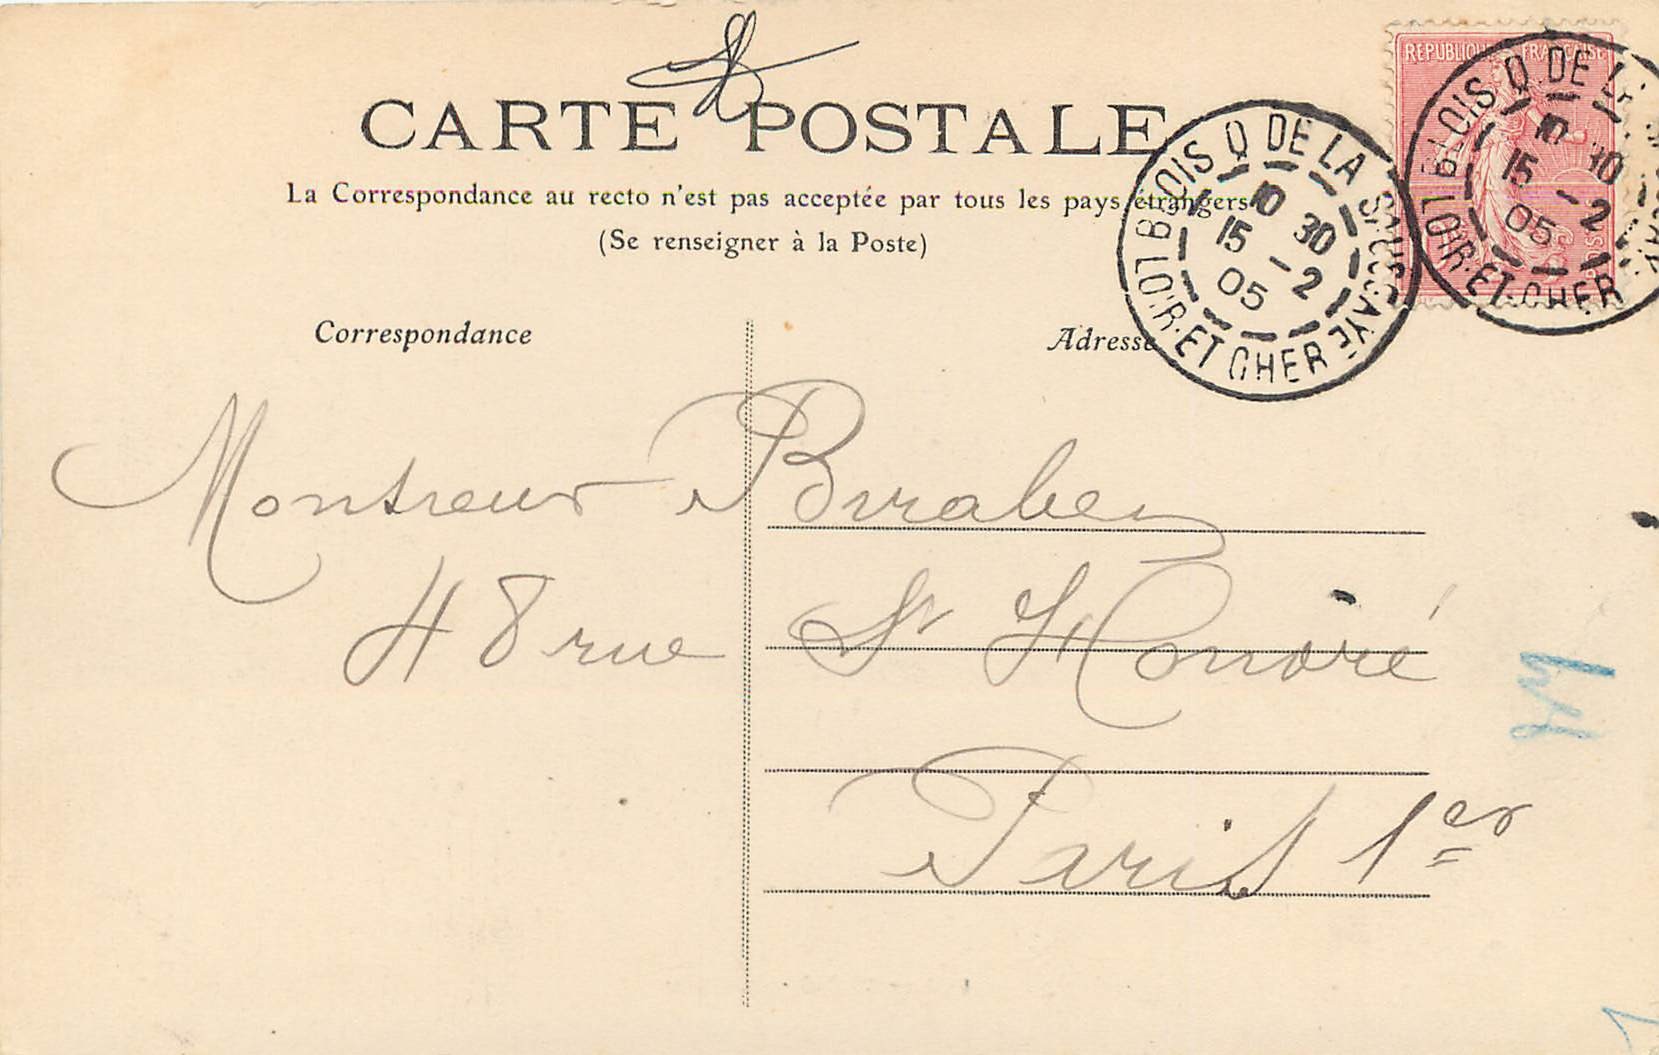 CARTE POSTALE
La Correspondance au recto n'est pas acceptée par tous les pays étrangers
(Se renseigner à la Poste)
REPUBLIQUE FRANCAISE
BLOIS Q. DE LA SAUSSAYE
10 30
15 - 2
05
LOIR-ET-CHER
BLOIS Q. DE L
10 30
15 - 2
05
LOIR-ET-CHER
Correspondance
Adresse
Monsieur Biraben
48 rue St Honoré
Paris 1er